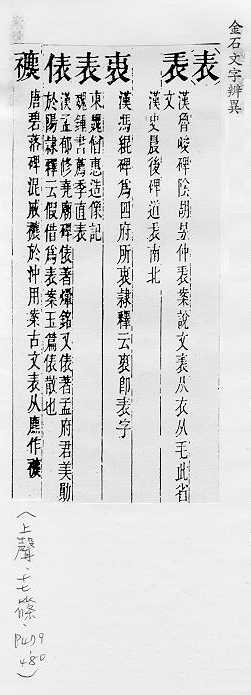 金石文字辨異
表
表
漢魯峻碑陰胡昱仲表案說文表从衣从毛此省
文
漢史晨後碑道表南北
衷
漢馮緄碑為四府所衷隸釋云衷即表字
表
東魏俏惠造像記
魏鍾書薦季直表
俵
漢孟郁修堯廟碑俵著爛銘又俵著孟府君美勛
於陽隸釋云假借為表案玉篇俵散也
𧞤
唐碧落碑混成𧞤於沖用案古文表从麃作𧞤
(上聲·十七篠·P479
480)